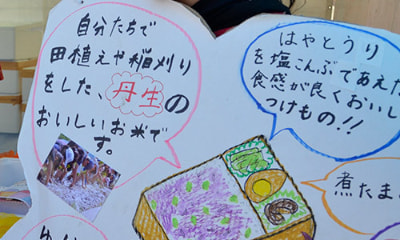 自分たちで
田植えや稲刈り
をした、丹生の
おいしいお米で
す。
はやとうり
を塩こんぶであえた
食感が良くおいしい
つけもの!!
煮たま